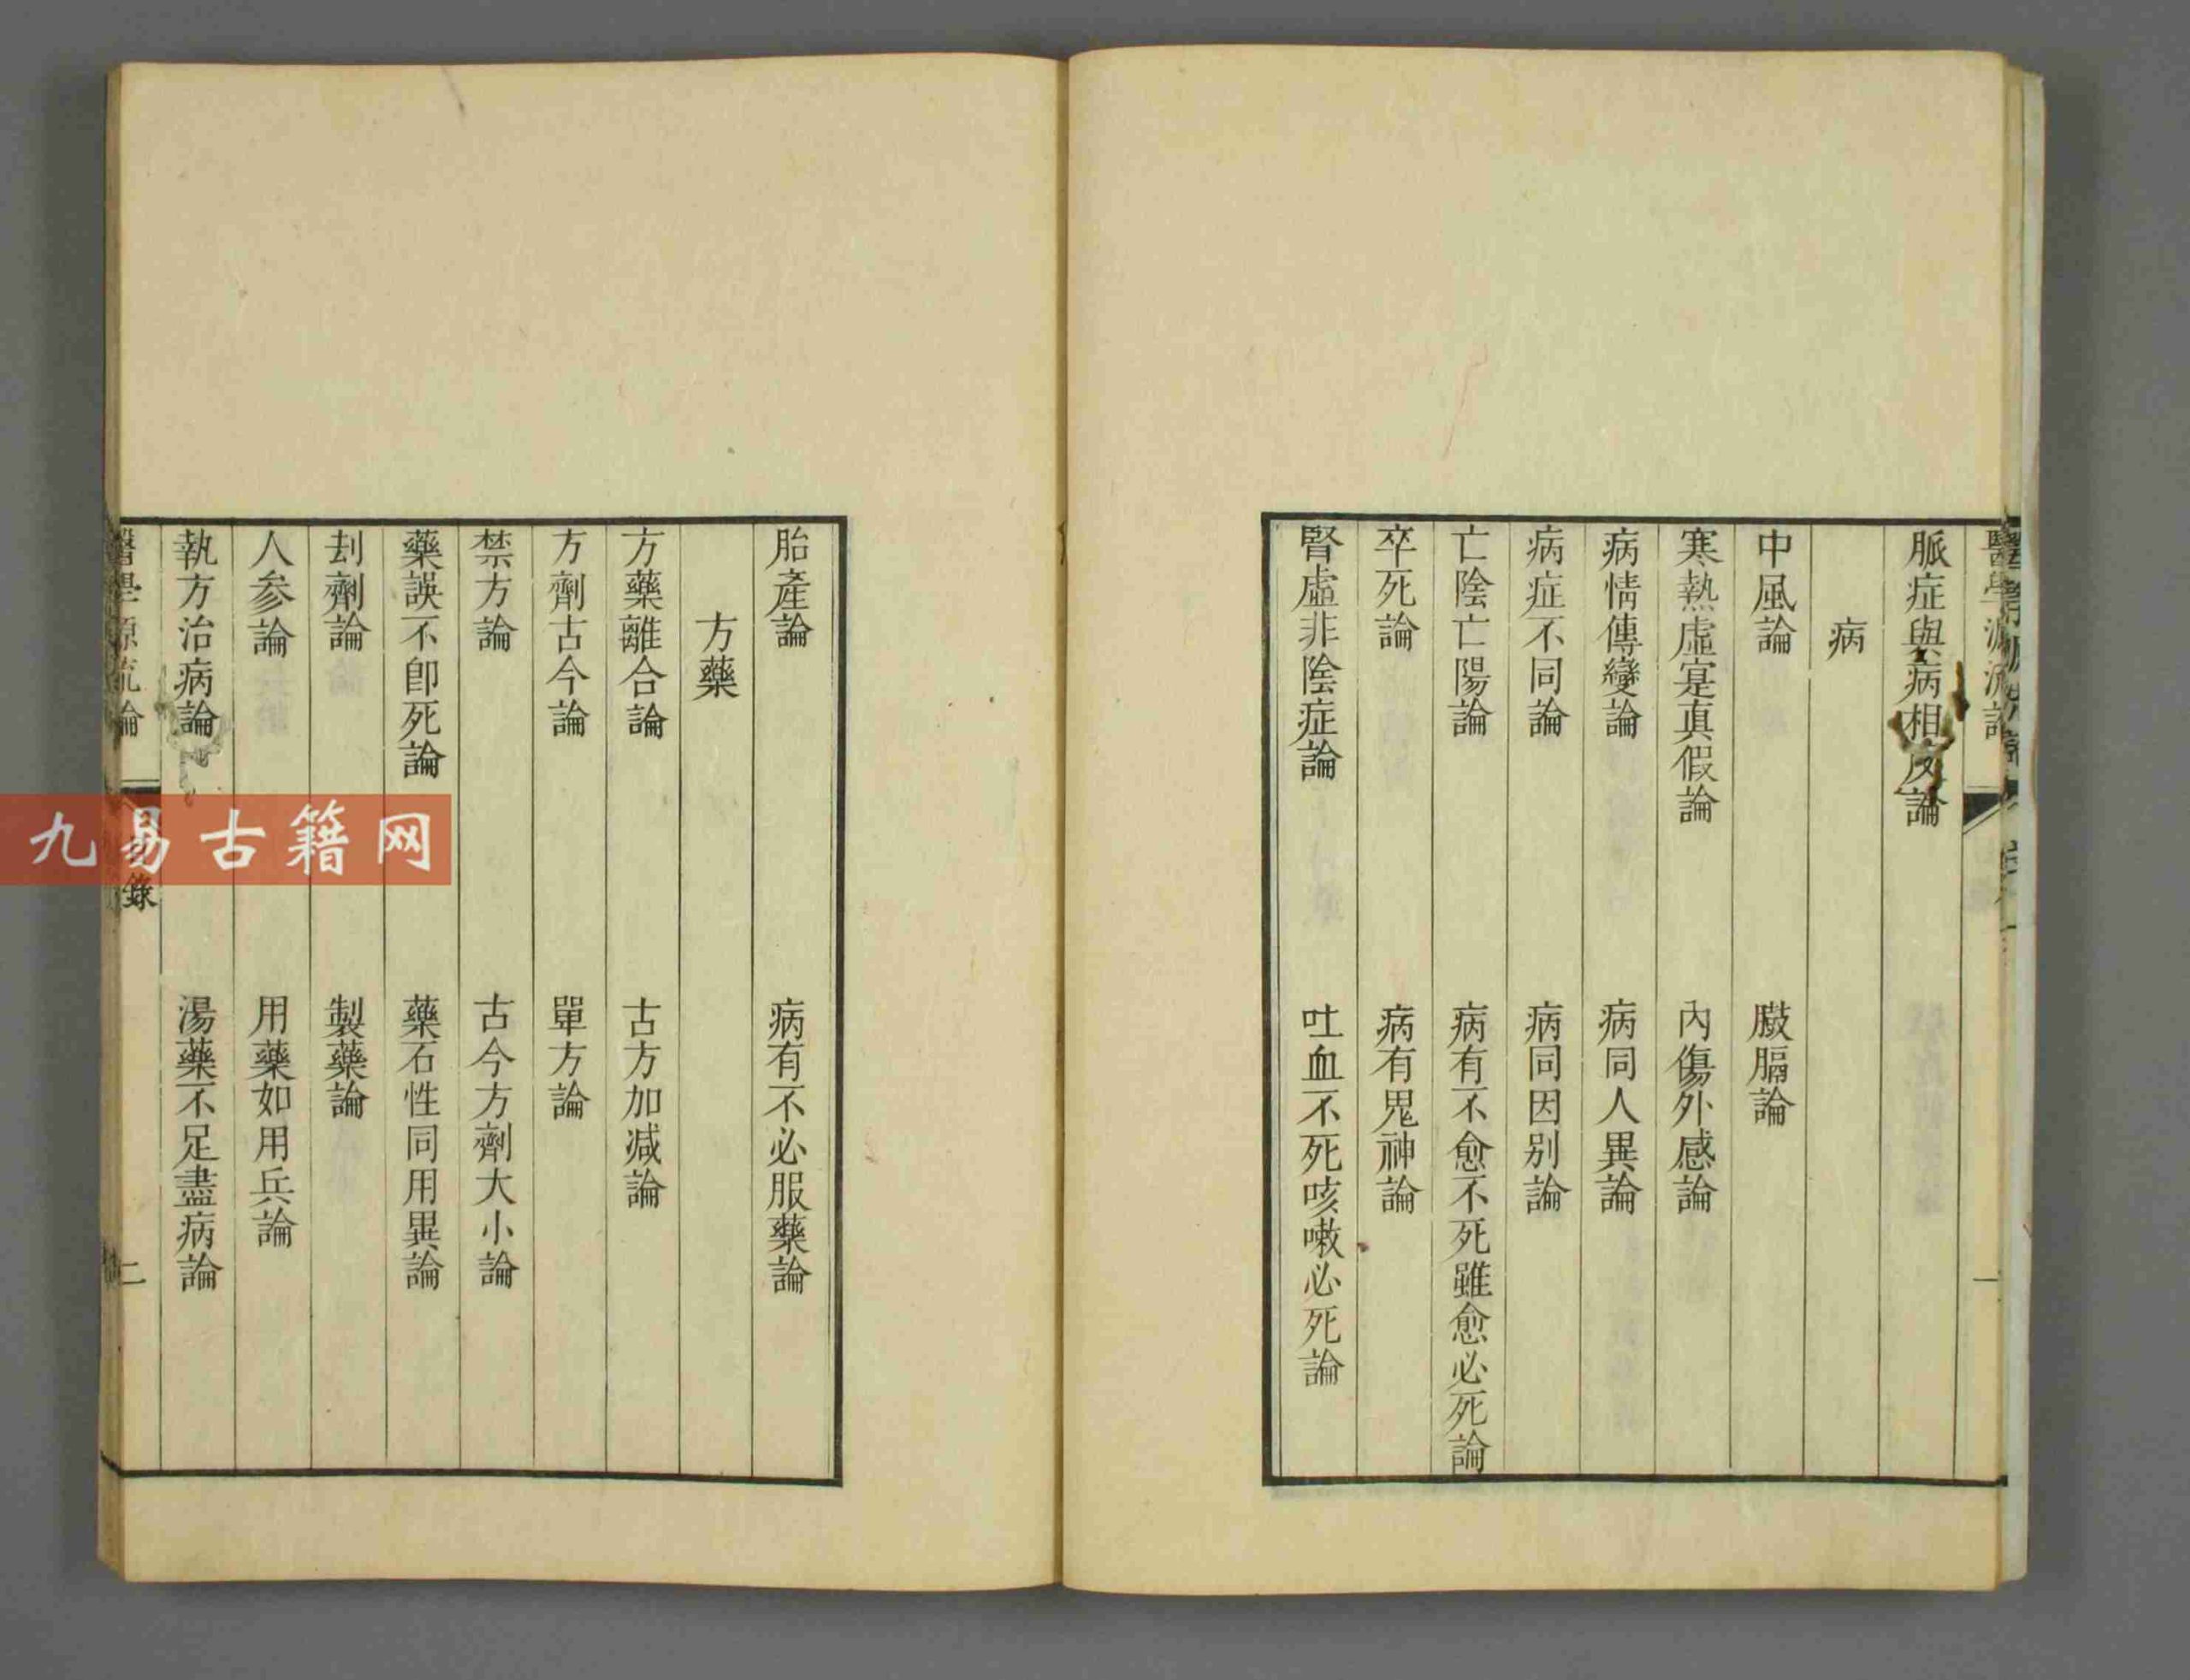 醫學源流論
一
脈症與病相反論
病
中風論 臌膈論
寒熱虛寔真假論 內傷外感論
病情傳變論 病同人異論
病症不同論 病同因别論
亡陰亡陽論 病有不愈不死雖愈必死論
卒死論 病有鬼神論
腎虛非陰症論 吐血不死咳嗽必死論
胎產論 病有不必服藥論
方藥
方藥離合論 古方加减論
方劑古今論 單方論
禁方論 古今方劑大小論
藥誤不卽死論 藥石性同用異論
刦劑論 製藥論
人参論 用藥如用兵論
執方治病論 湯藥不足盡病論
醫學源流論 目錄 二
九易古籍网